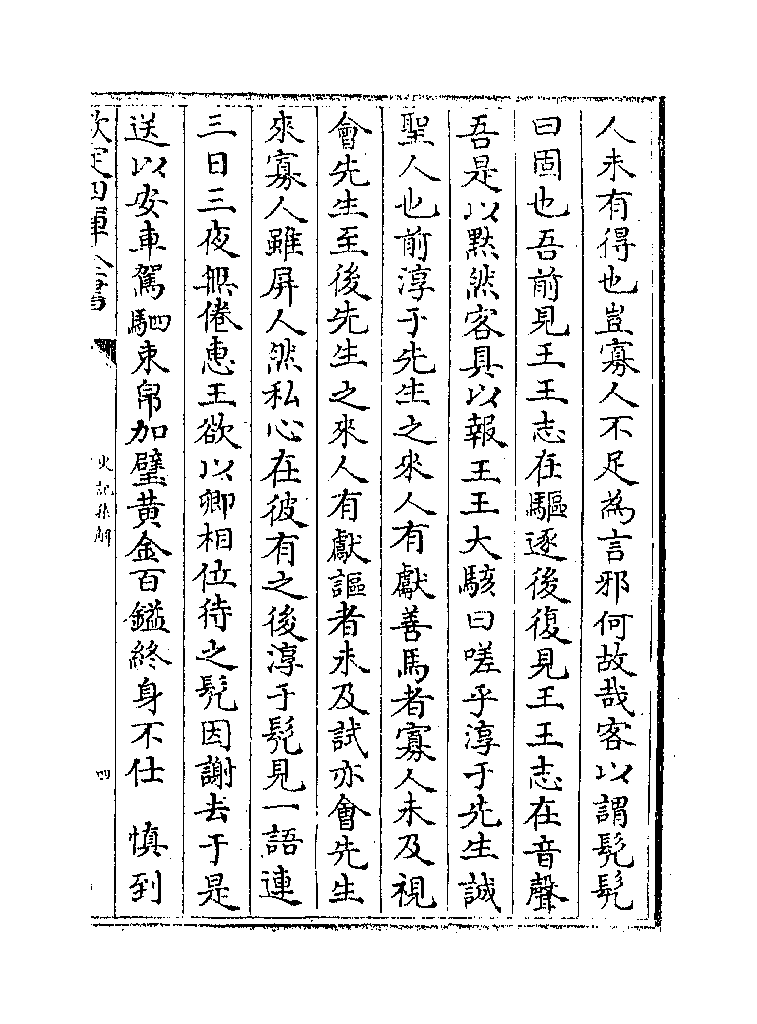 人未有得也豈寡人不足為言邪何故哉客以謂髠髠
曰固也吾前見王王志在驅逐後復見王王志在音聲
吾是以黙然客具以報王王大駭曰嗟乎淳于先生誠
聖人也前淳于先生之來人有獻善馬者寡人未及視
會先生至後先生之來人有獻謳者未及試亦會先生
來寡人雖屏人然私心在彼有之後淳于髠見一語連
三日三夜無倦惠王欲以卿相位待之髠因謝去于是
送以安車駕駟束帛加璧黄金百鎰終身不仕　慎到
欽定四庫全書
史記集解
四